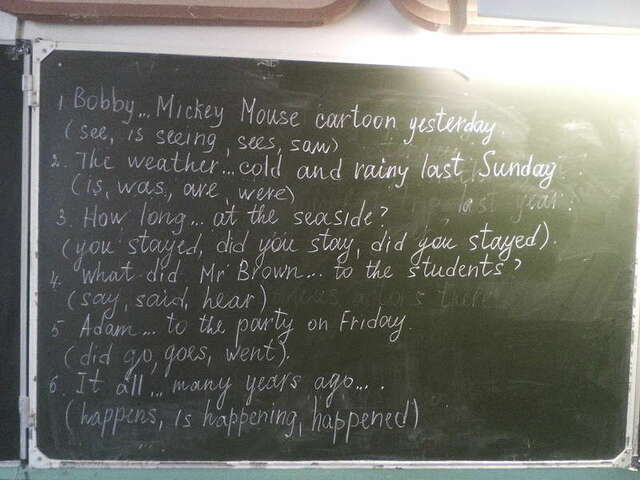 1 Bobby... Mickey Mouse cartoon yesterday.
(see, is seeing, sees, saw)
2. The weather... cold and rainy last Sunday.
(is, was, are, were)
3. How long... at the seaside?
(you stayed, did you stay, did you stayed).
4. What did Mr Brown... to the students?
(say, said, hear)
5 Adam... to the party on Friday.
(did go, goes, went).
6. It all... many years ago....
(happens, is happening, happened)